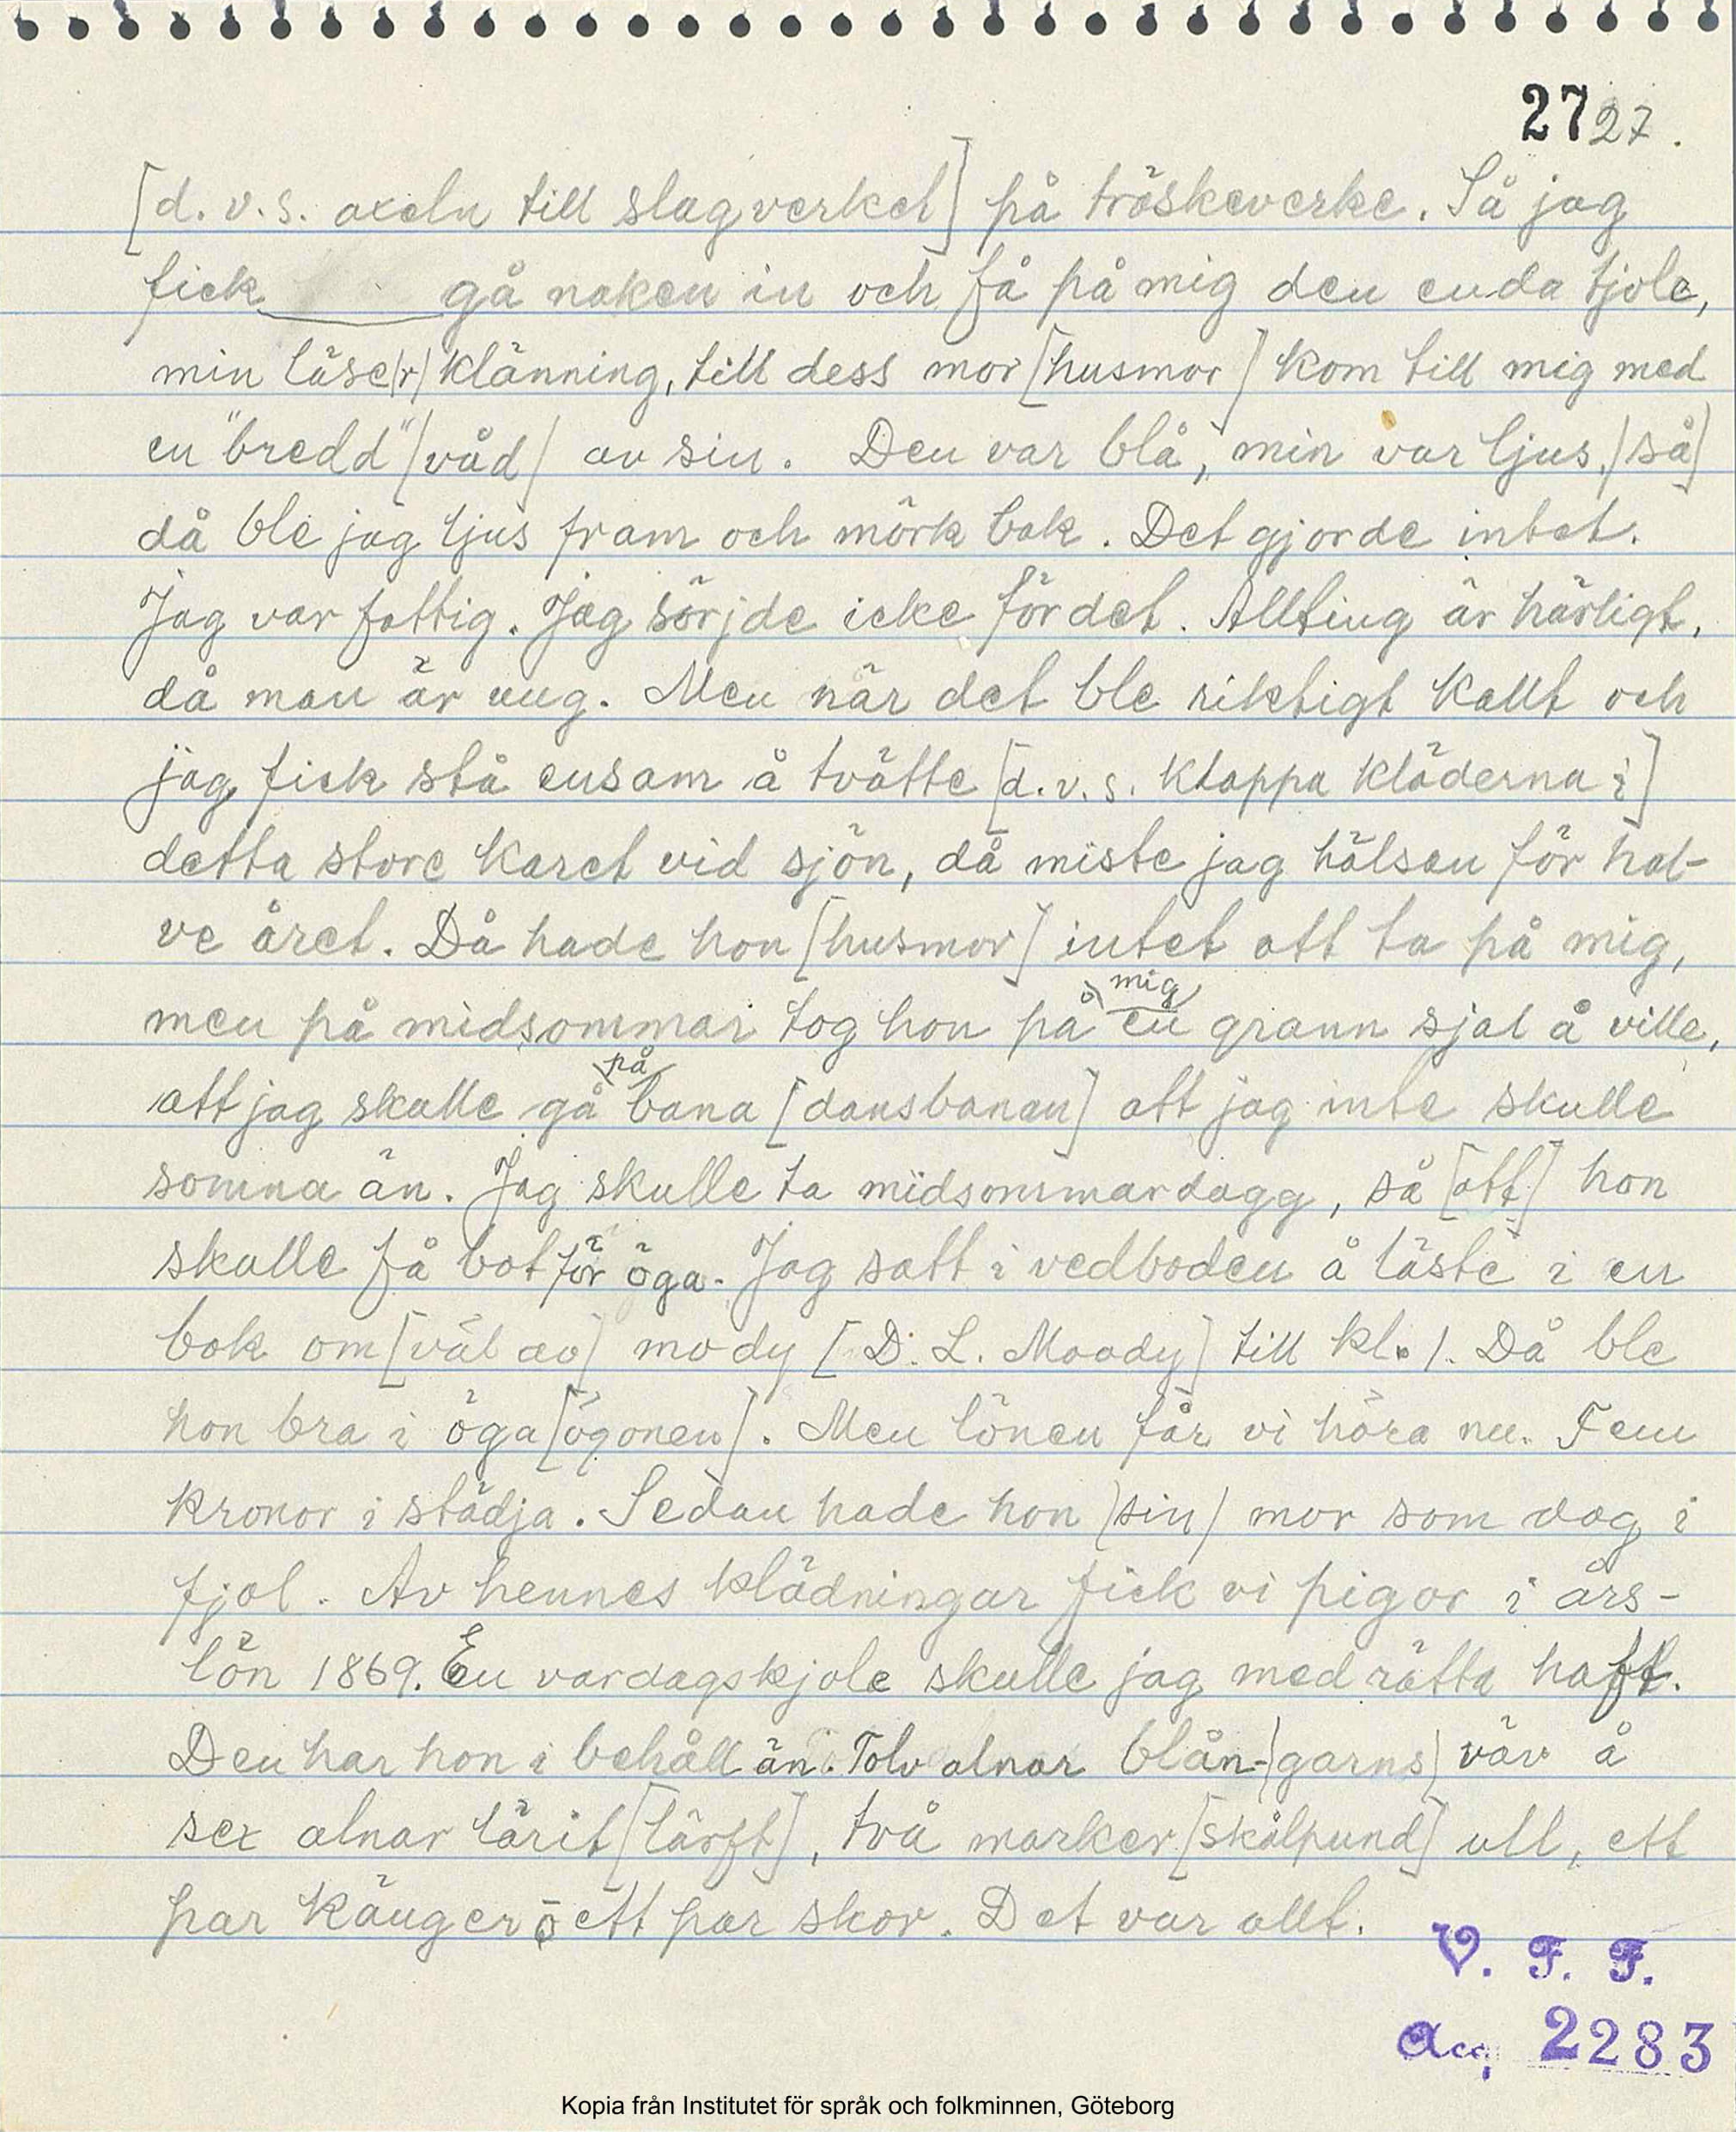 27 27.
[d. v. s. axeln till slagverket] på tröskeverke. Så jag
fick gå naken in och få på mig den enda tjole,
min läse(r)klänning, till dess mor [husmor] kom till mig med
en "bredd" (våd) av sin. Den var blå, min var ljus, (så)
då ble jag ljus fram och mörk bak. Det gjorde intet.
Jag var fattig. Jag sörjde icke för det. Allting är härligt,
då man är ung. Men när det ble riktigt kallt och
jag fick stå ensam å tvätte [d. v. s. klappa kläderna i]
detta store karet vid sjön, då miste jag hälsan för hal-
ve året. Då hade hon [husmor] intet att ta på mig,
men på midsommar tog hon på mig en grann sjal å ville,
att jag skulle gå på bana [dansbanan] att jag inte skulle
somna än. Jag skulle ta midsommardagg, så [att] hon
skulle få bot för öga. Jag satt i vedboden å läste i en
bok om [väl av] mody [D. L. Moody] till kl. 1. Då ble
hon bra i öga [ögonen]. Men lönen får vi höra nu. Fem
kronor i städja. Sedan hade hon (sin) mor som dog i
fjol. Av hennes klädningar fick vi pigor i års-
lön 1869. En vardagskjole skulle jag med rätta haft.
Den har hon i behåll än. Tolv alnar blån-(garns) väv å
sex alnar lärit [lärft], två marker [skålpund] ull, ett
par känger o ett par skor. Det var allt.
V. F. F.
Acq. 2283
Kopia från Institutet för språk och folkminnen, Göteborg